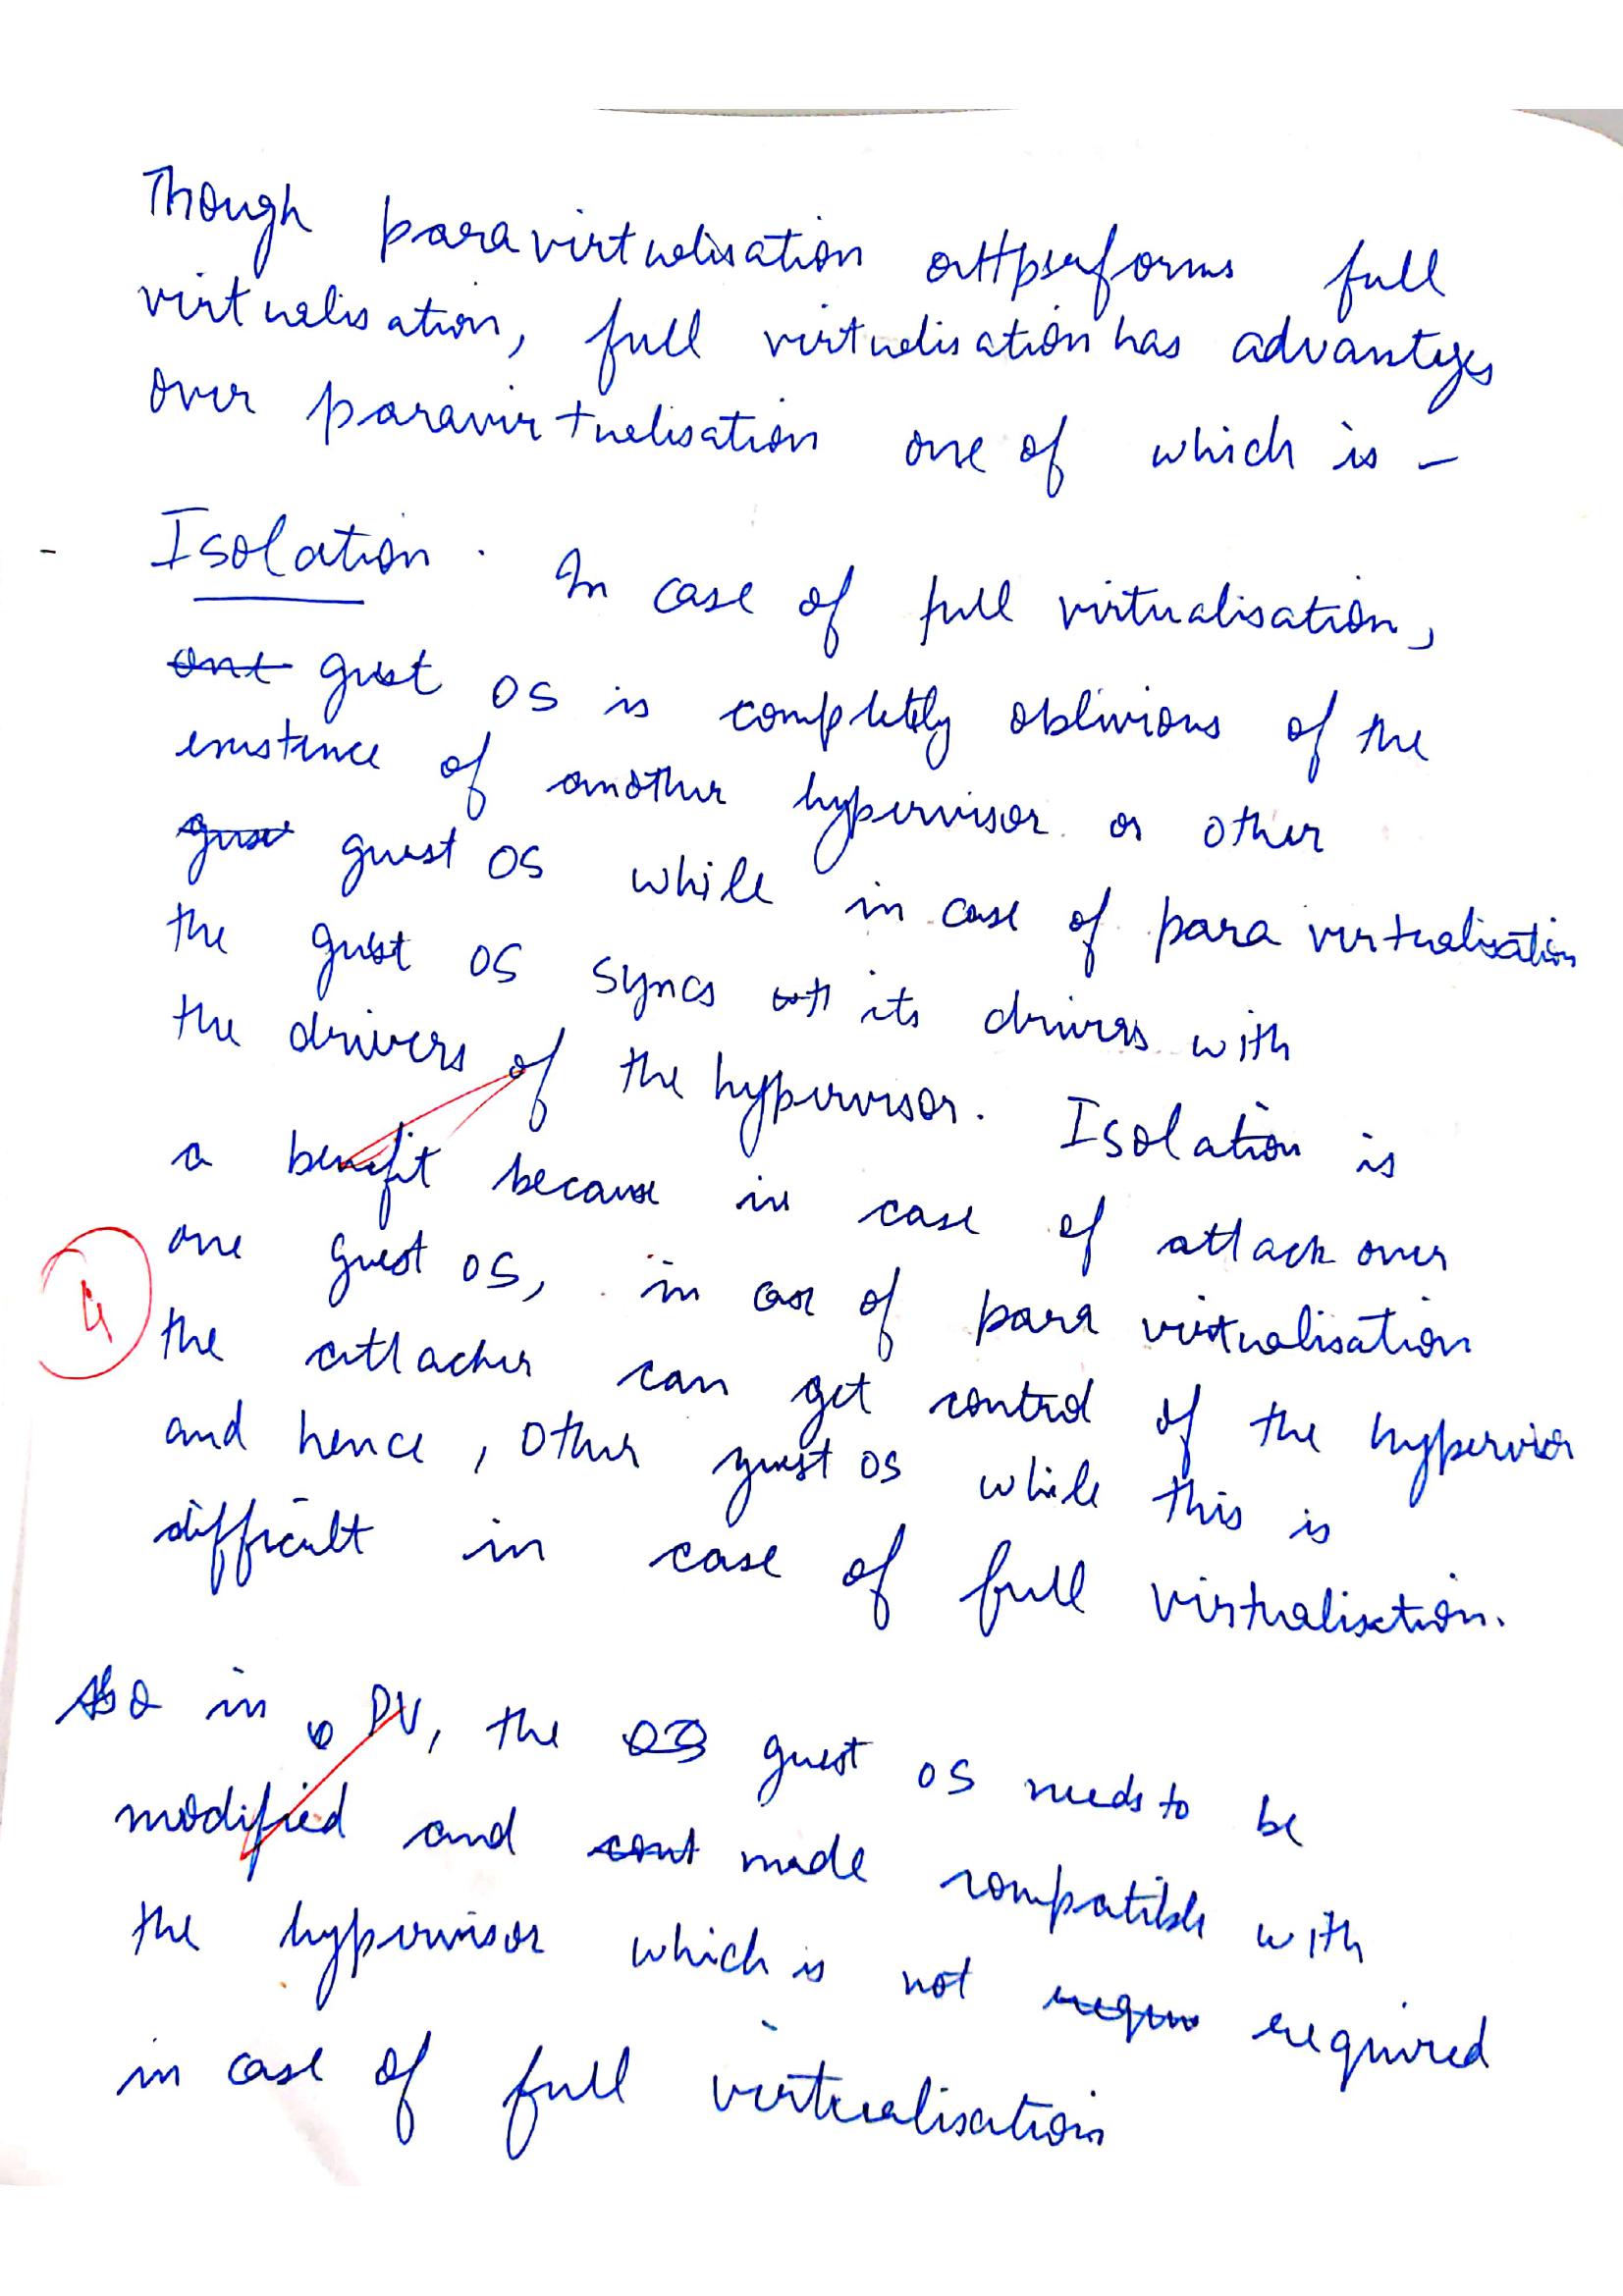 Though paravirtualisation outperforms full
virtualisation, full virtualisation has advantages
over paravirtualisation one of which is -
- Isolation. In case of full virtualisation,
guest OS is completely oblivious of the
existence of another hypervisor or other
guest OS while in case of para virtualisation
the guest OS syncs its drivers with
the drivers of the hypervisor. Isolation is
a benefit because in case of attack over
one guest OS, in case of para virtualisation
4
the attacker can get control of the hypervisor
and hence, other guest OS while this is
difficult in case of full virtualisation.
Also in PV, the guest OS needs to be
modified and made compatible with
the hypervisor which is not required
in case of full virtualisation